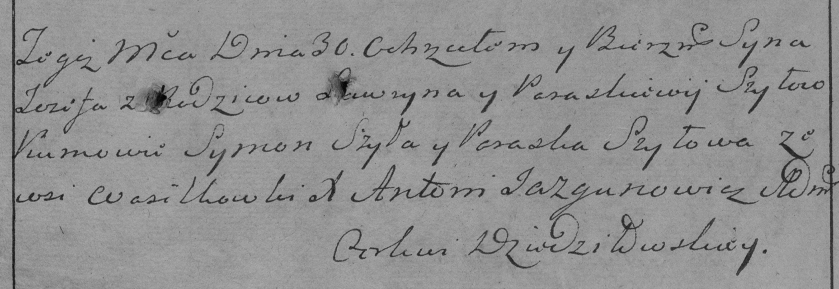 Tegoż Mca Dnia 30. Ochrzciłem y Bierzm Syna
Jozefa z Rodzicow Ławryna y Paraskiewij Szyłow
Kumowie Symon Szyła y Paraska Szyłowa ze
wsi Wasilkowki X Antoni Jazgunowicz Adm
Cerkwi Dziedziłowskiey.